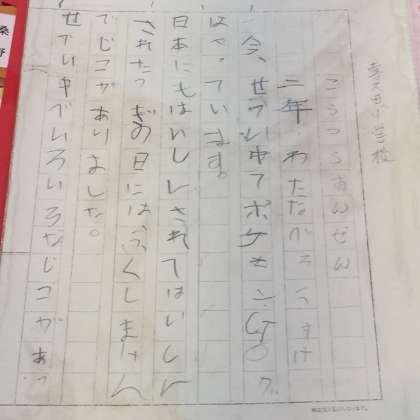 こうつうあんぜん
二年 わたなべ
今、せかい中でポケモンGOが
はやっています。
日本にもはいしんされてはいしん
されたつぎの日には、ふくしまけん
でじこがありました。
せかい中でいろいろなじこがあっ
小学校
桑
野